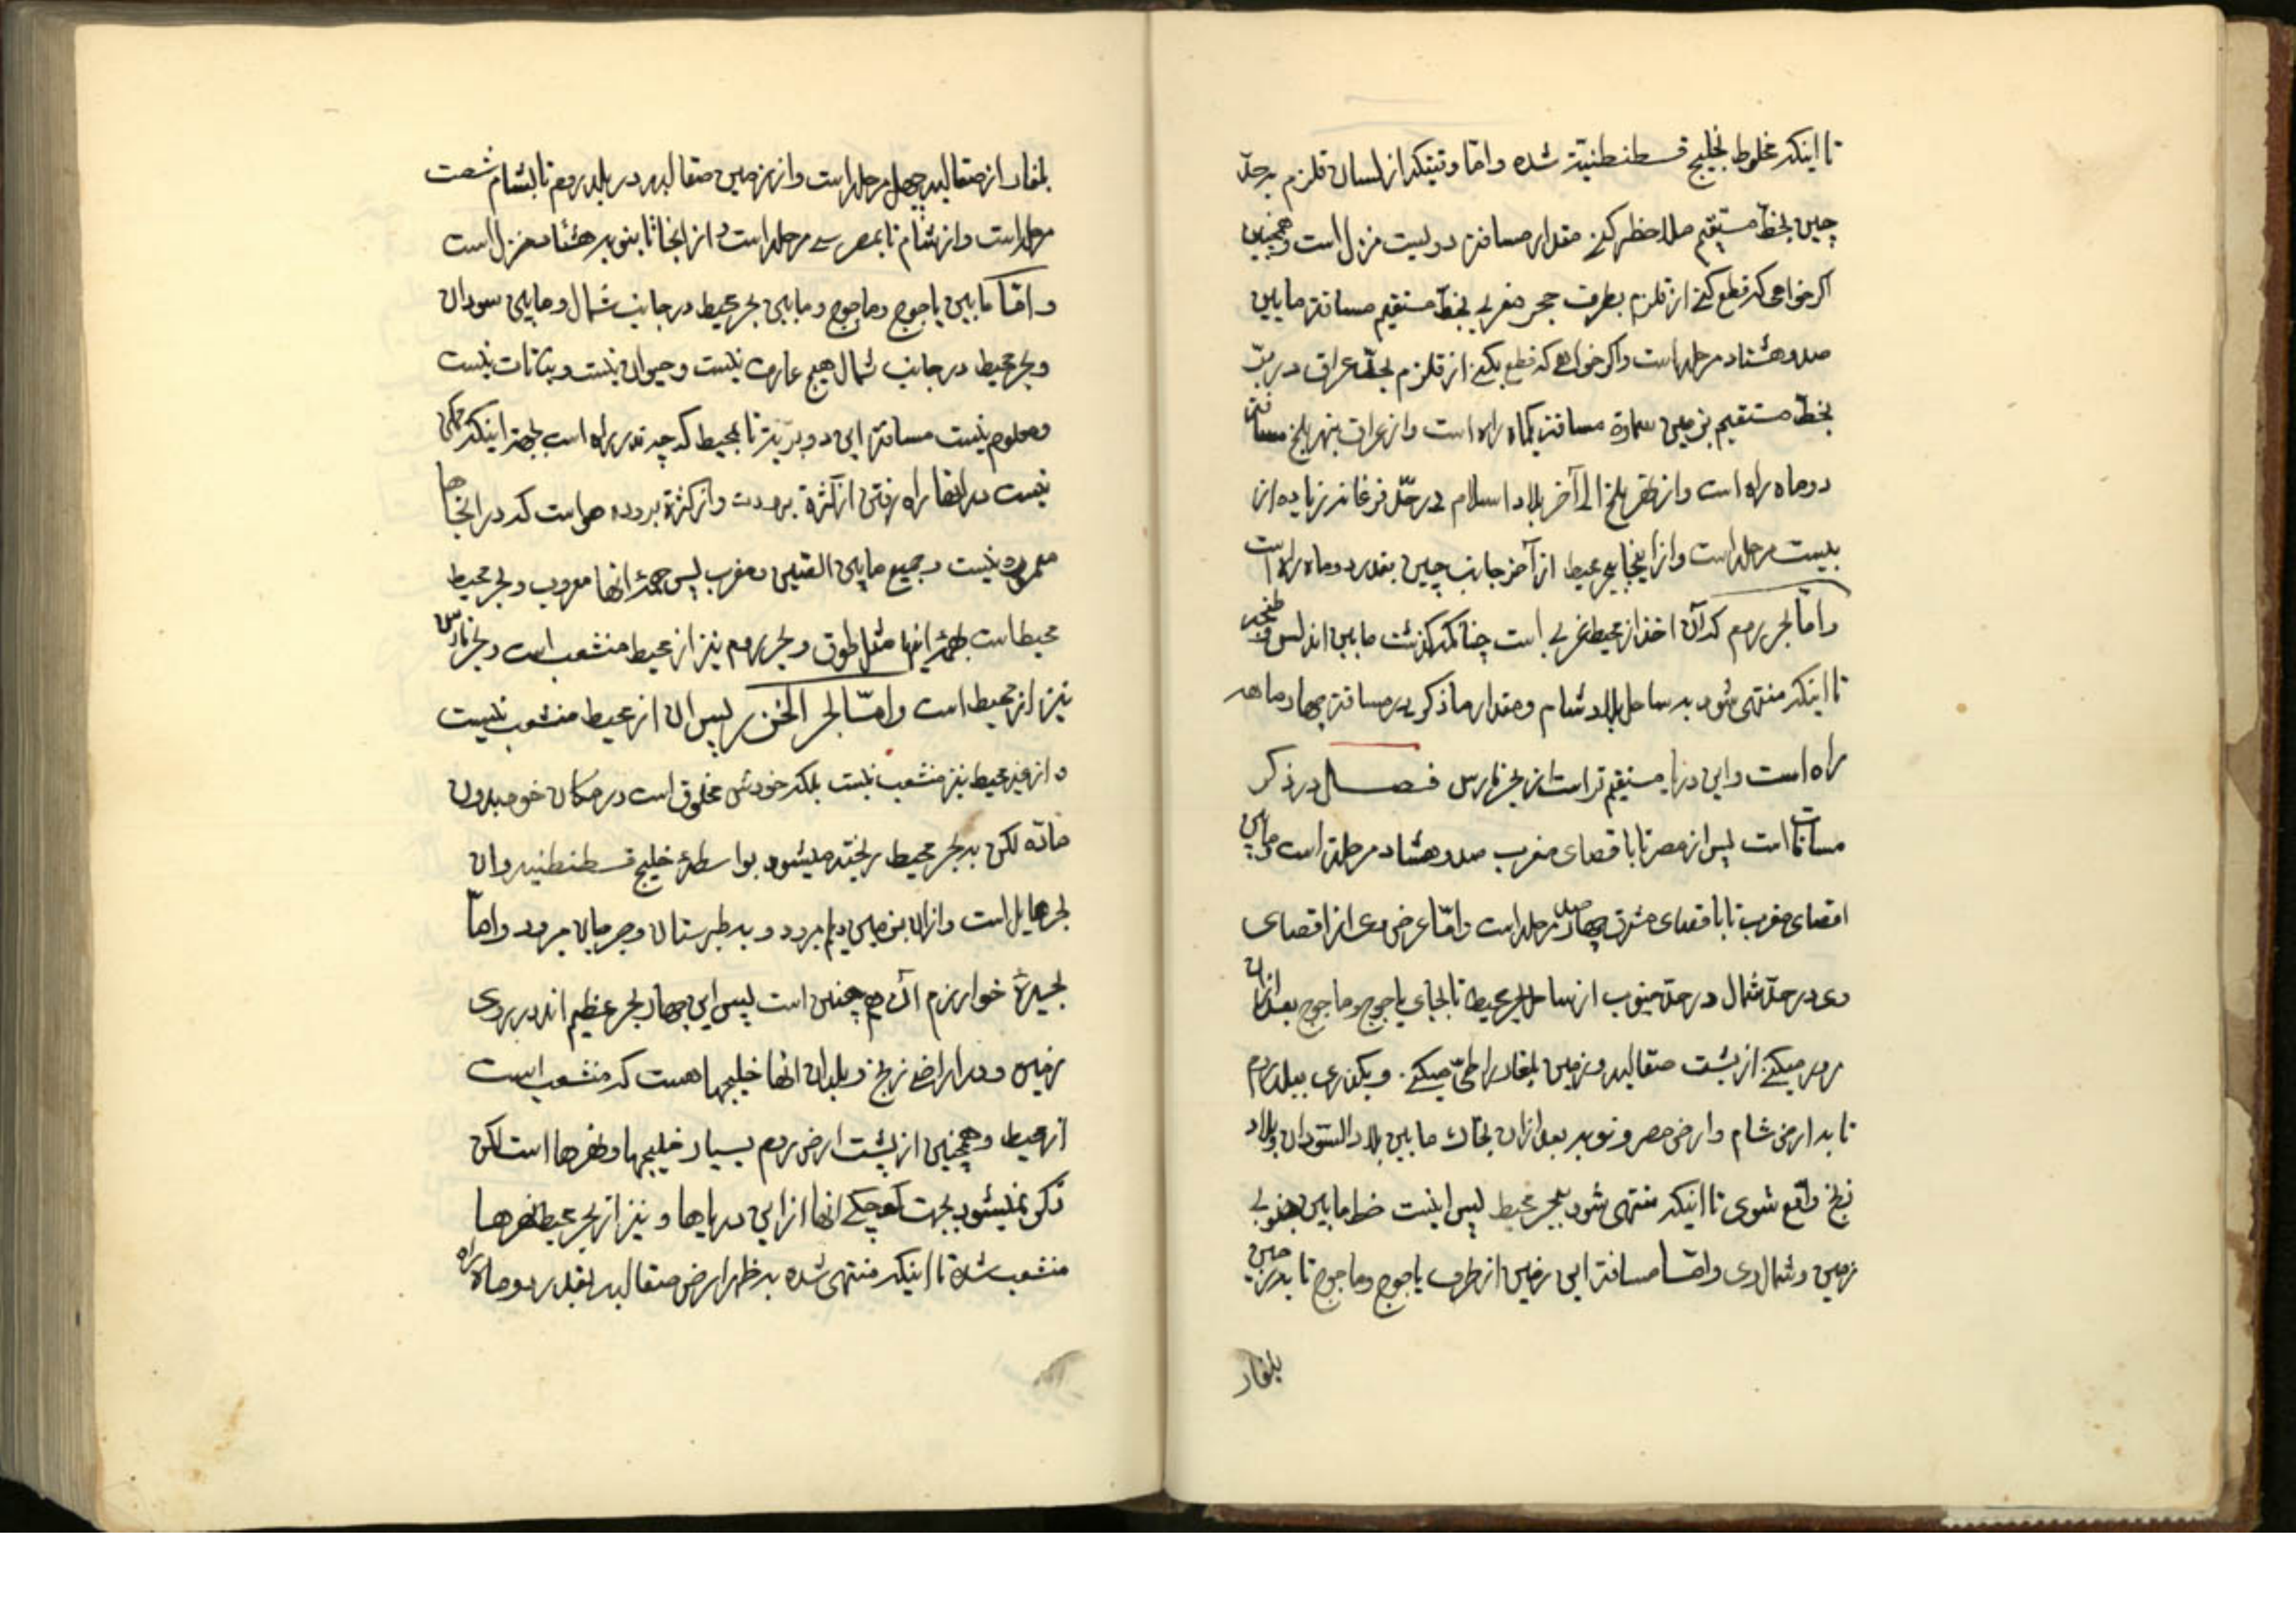 تا اینکه مخلوط بخلیج قسطنطنیّة شده و امّا وقتیکه از لسان قلزم بر حدّ
چین بخطّ مستقیم ملاحظه کنی مقدار مسافة دویست منزل است و همچنین
اگر خواهی که قطع کنی از قلزم بطرف حجر مغربی بخطّ مستقیم مسافة مابین
صد و هشتاد مرحله است و اگر خواهی که قطع بکنی از قلزم بحدّ عراق در بریّت
بخطّ مستقیم بزمین سماوة مسافة یکماه راه است و از عراق بنهر بلخ مسافة
دو ماه راه است و از نهر بلخ الی آخر بلاد اسلام در حدّ فرغانه زیاده از
بیست مرحله است و از اینجا ببحر محیط از آخر جانب چین بقدر دو ماه راه است
و امّا بحر روم که آن اخذ از محیط غربی است چنانکه گذشت مابین اندلس و طنجه
تا اینکه منتهی شود به ساحل بلاد شام و مقدار ما ذکر در مسافة چهار ماهه
راه است و این دریا مستقیم تر است از بحر فارس فصل در ذکر
مسافات است پس از مصر تا باقصای مغرب صد و هشتاد مرحلة است و مابین
اقصای مغرب تا باقصای مشرق چهار صد مرحله است و امّا عرض وی از اقصای
وی در حدّ شمال در حدّ جنوب از ساحل بحر محیط تا بجای یاجوج و ماجوج بعد از آن
مرور میکنی از پشت صقالبه و زمین بلغار را طیّ میکنی و بگذری ببلد روم
تا به ارض شام و ارض مصر و نوبه بعد از آن بحدّ مابین بلاد السّودان و بلاد
زنج واقع شوی تا اینکه منتهی شود ببحر محیط پس اینست خط مابین جنوبی
زمین و شمال وی و امّا مسافة این زمین از طرف یاجوج و ماجوج تا به زمین
بلغار
بلغار از صقالبه چهل مرحله است و از زمین صقالبه در بلد روم تا بشام شصت
مرحله است و از شام تا بمصر سی مرحله است و از انجا تا بنوبه هشتاد منزل است
و امّا مابین یاجوج و ماجوج و مابین بحر محیط در جانب شمال و مابین سودان
و بحر محیط در جانب شمال هیچ عمارت نیست و حیوان نیست و نباتات نیست
و معلوم نیست مسافة این دو بریّة تا بمحیط که چه قدر راه است بجهة اینکه ممکن
نیست در انها راه رفتن از کثرة برودت و از کثرة برودة هواست که در انجاها
معموره نیست و جمیع مابین الصین و مغرب پس همهٔ انها معروب و بحر محیط
محیط است بهمهٔ انها مثل طوق و بحر روم نیز از محیط منشعب است و بحر فارس
نیز از محیط است و امّا بحر الخزر پس ان از محیط منشعب نیست
و از غیر محیط نیز منشعب نیست بلکه خودش مخلوق است در مکان خود بدون
مادّه لکن به بحر محیط ریخته میشود بواسطهٔ خلیج قسطنطنیه و ان
بحر هایل است و ازان بزمین دیلم برود و به طبرستان و جرجان برود و امّا
بحیرهٔ خوارزم آن هم چنین است پس این چهار بحر عظیم اند در روی
زمین و در اراضی زنج و بلدان انها خلیجها هست که منشعب است
از محیط و همچنین از پشت ارض روم بسیار خلیجها و نهرها است لکن
ذکر نمیشود بجهت کوچکی انها از این دریاها و نیز از بحر محیط نهرها
منشعب شده تا اینکه منتهی شده به ظهر ارض صقالبه بقدر دو ماه راه